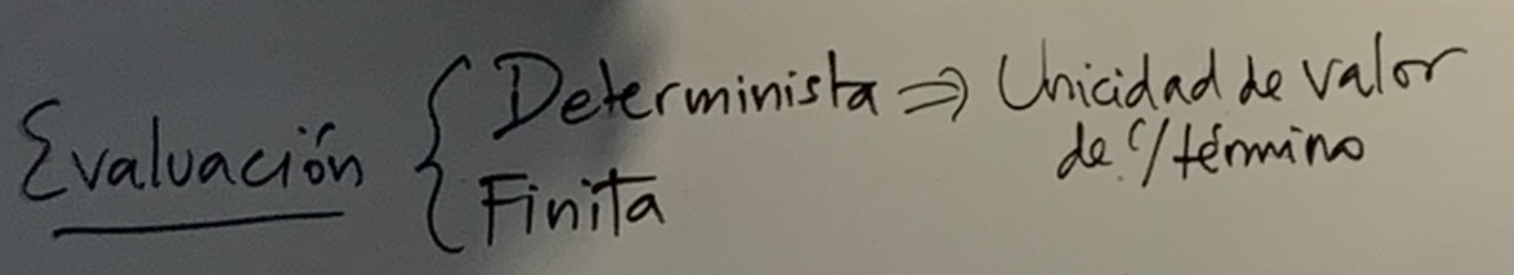 Evaluación { Determinista ⇒ Unicidad de valor
de c/ término
Finita